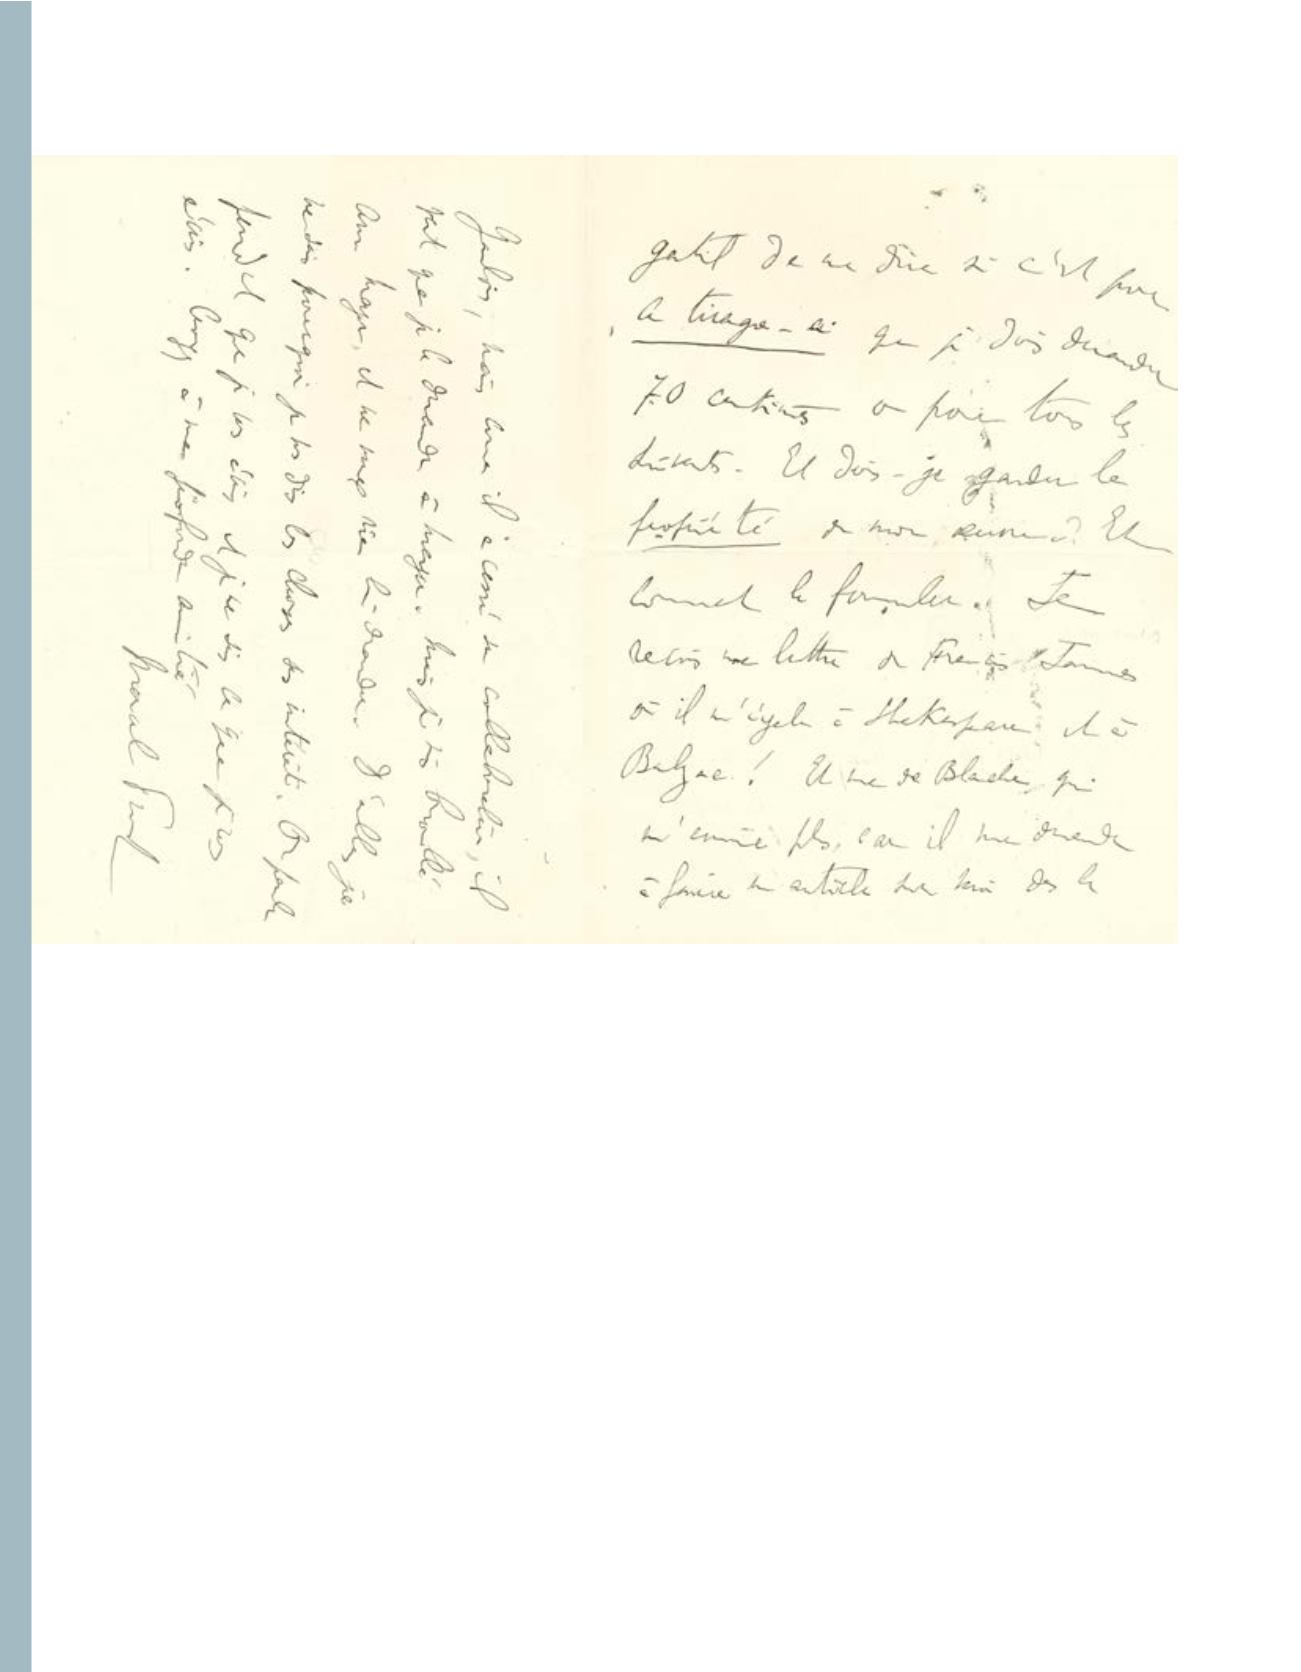 gentil de me dire si c'est pour
ce tirage-ci que je dois demander
70 centimes ou pour tous les
suivants. Et dois-je garder la
propriété de mon œuvre? Et
comment le formuler. Je
reçois une lettre de Francis Jammes
où il m'égale à Shakespeare et à
Balzac! Et une de Blanche, qui
m'ennuie plus, car il me demande
à faire un article sur lui dans le
Gaulois, mais comme il a cessé sa collaboration, il
veut que je le demande à Meyer. Mais je suis brouillé
avec Meyer, et ne veux rien lui demander. D'ailleurs je
ne sais pourquoi je vous dis les choses sans intérêt. On parle
pendant que je vous écris et je ne sais ce que je vous
écris. Croyez à ma profonde amitié
Marcel Proust